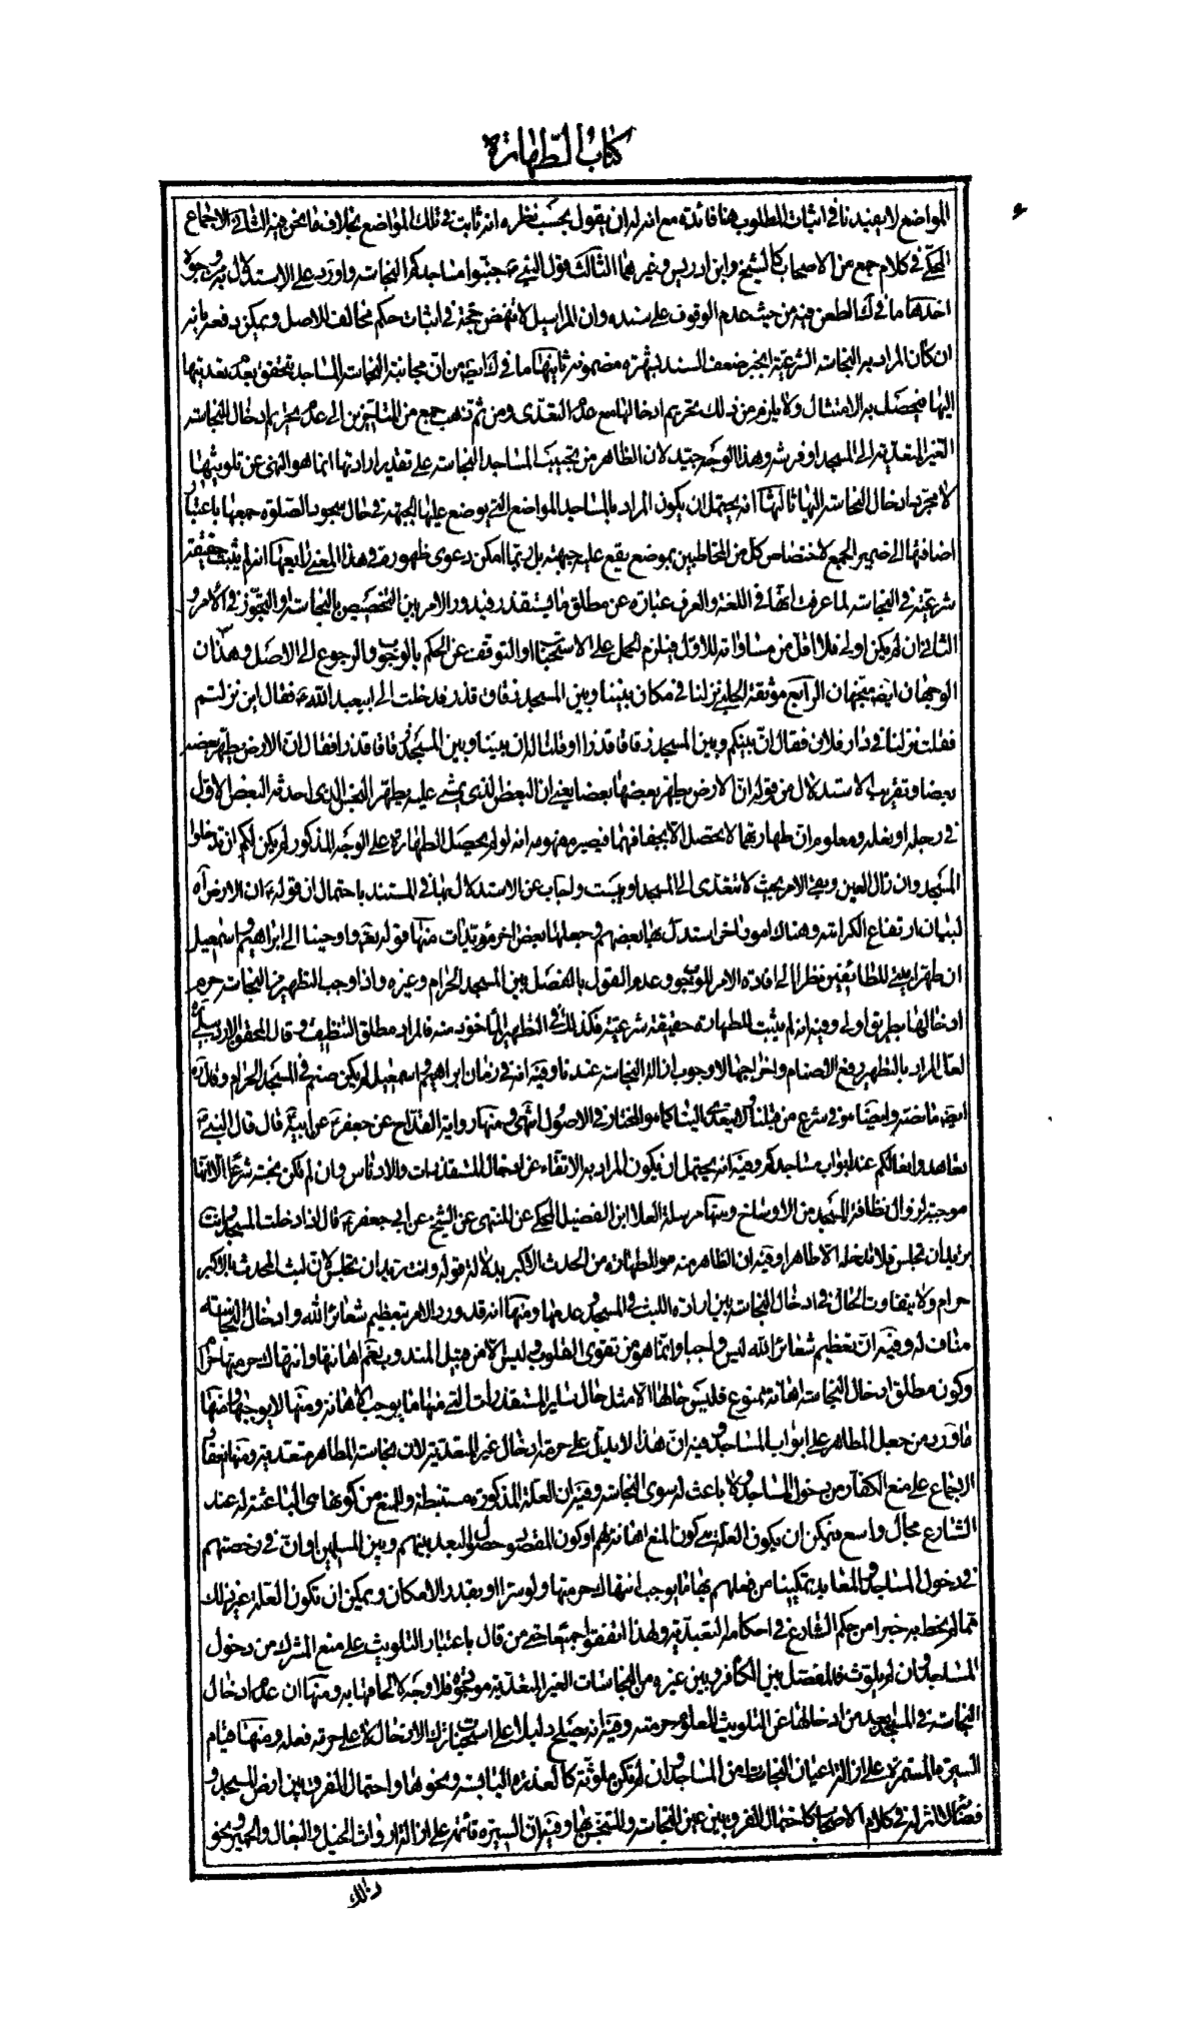 كتاب الطهارة
المواضع لا يفيدنا في اثبات المطلوب هنا فائدة مع انه له ان يقول بحسب نظره انه ثابت في تلك المواضع بخلاف ما نحن فيه الثاني الاجماع
المحكي في كلام جمع من الاصحاب كالشيخ وابن ادريس وغيرهما الثالث قول النبي ص جنبوا مساجدكم النجاسة واورد على الاستدلال به وجوه
احدها ما في ك الطعن فيه من حيث عدم الوقوف على سنده وان المراسيل لا تنهض حجة في اثبات حكم مخالف للاصل ويمكن دفعه بانه
ان كان المراد به النجاسة الشرعية انجبر ضعف السند بشهرة مضمونه ثانيها ما في ك ايضا من ان مجانبة النجاسة المساجد تتحقق بعدم تعديتها
اليها فيحصل به الامتثال ولا يلزم من ذلك تحريم ادخالها مع عدم التعدى ومن ثم ذهب جمع من المتاخرين الى عدم تحريم ادخال النجاسة
الغير المتعدية الى المسجد او فرشه وهذا الوجه جيد لان الظاهر من تجنيب المساجد النجاسة على تقدير ارادتها انما هو النهى عن تلويثها
لا مجرد ادخال النجاسة اليها ثالثها انه يحتمل ان يكون المراد بالمساجد المواضع التي يوضع عليها الجبهة في حال سجود الصلوة جمعها باعتبار
اضافتها الى ضمير الجمع لاختصاص كل من المخاطبين بموضع يقع عليه جبهته بل ربما امكن دعوى ظهوره في هذا المعنى رابعها انه لم يثبت حقيقة
شرعية في النجاسة لما عرفت انها في اللغة والعرف عبارة عن مطلق ما يستقذر فيدور الامر بين التخصيص بالنجاسة او التجوز في الامر و
الثاني ان لم يكن اولى فلا اقل من مساواته للاول فيلزم الحمل على الاستحباب او التوقف عن الحكم بالوجوب والرجوع الى الاصل وهذان
الوجهان ايضا متجهان الرابع موثقة الحلبي نزلنا في مكان بيننا وبين المسجد زقاق قذر فدخلت الى ابي عبد الله ع فقال اين نزلتم
فقلت نزلنا في دار فلان فقال ان بينكم وبين المسجد زقاقا قذرا او قلنا له ان بيننا وبين المسجد زقاقا قذرا فقال ان الارض يطهر بعضه
بعضا وتقريب الاستدلال من قوله ان الارض يطهر بعضها بعضا يعني ان البعض الذي يمشي عليه يطهر النجس الذي احدثه البعض الاول
في رجله او نعله ومعلوم ان طهارتهما لا يحصل الا بجفافهما فيصير مفهومه انه لو لم يحصل الطهارة على الوجه المذكور لم يكن لكم ان تدخلوا
المسجد وان زال العين وبقي الامر بحيث لا تتعدى الى المسجد او يبست واجاب عن الاستدلال بها في المستند باحتمال ان قوله ع ان الارض آه
لبيان ارتفاع الكراهة وهناك امور اخر استدل بها بعضهم وجعلها بعض اخر مؤيدات منها قوله تعالى واوحينا الى ابراهيم واسمعيل
ان طهرا بيتي للطائفين نظرا الى افادة الامر للوجوب وعدم القول بالفصل بين المسجد الحرام وغيره واذا وجب التطهير من النجاسة حرم
ادخالها بطريق اولى وفيه انه لم يثبت للطهارة حقيقة شرعية فكذلك في التطهير الماخوذ منه فالمراد مطلق التنظيف وقال المحقق الاردبيلي
لعل المراد بالتطهير رفع الاصنام واخراجها لا وجوب ازالة النجاسة عندنا وفيه انه في زمان ابراهيم واسمعيل لم يكن صنم في المسجد الحرام
ايضا ما ختر وايضا هو في شرع من قبلنا ولا يتعدى الينا كما هو المختار في الاصول انتهى ومنها رواية القداح عن جعفر ع عن ابيه ع قال قال النبي ص
تعاهدوا نعالكم عند ابواب مساجدكم وفيه انه يحتمل ان يكون المراد به الاتقاء عن ادخال المستقذرات والادناس وان لم تكن نجسة شرعا الا انها
موجبة لزوال نظافة المسجد من الاوساخ ومنها مرسلة العلا ابن الفضيل المحكي عن المنتهى عن الشيخ عن ابي جعفر ع قال اذا دخلت المسجد وانت
تريد ان تجلس فلا تدخله الا طاهرا وفيه ان الظاهر منه هو الطهارة من الحدث الاكبر بدلالة قوله وانت تريد ان تجلس لان لبث المحدث بالاكبر
حرام ولا يتفاوت الحال في ادخال النجاسة بين ارادة اللبث في المسجد وعدمها ومنها انه قد ورد الامر بتعظيم شعائر الله وادخال النجاسة
مناف له وفيه ان تعظيم شعائر الله ليس واجبا وانما هو من تقوى القلوب وليس الا من قبيل المندوب نعم اهانتها وانتهاك حرمتها حرام
وكون مطلق ادخال النجاسة اهانة ممنوع فليس حالها الا مثل حال ساير المستقذرات التي منها ما يوجب الاهانة ومنها لا يوجبها ومنها
ما ورد من جعل المطاهر على ابواب المساجد وفيه ان هذا لا يدل على حرمة ادخال غير المتعدية لان نجاسة المطاهر متعدية ومنها انعقاد
الاجماع على منع الكفار من دخول المساجد ولا باعث له سوى النجاسة وفيه ان العلة المذكورة مستنبطة والمنع من كونها هي الباعثة له عند
الشارع مجال واسع فيمكن ان يكون العلة هي كون المنع اهانة لهم او كون المقصود حصول البعد بينهم وبين المسلمين او ان في رخصتهم
في دخول المساجد والمعابد تمكينا من فعلهم بها ما يوجب انتهاك حرمتها ولو سرا او بقدر الامكان ويمكن ان تكون العلة غير ذلك
مما لم نحط به خبرا من حكم الشارع في احكامه التعبدية ولهذا اتفقوا جميعا حتى من قال باعتبار التلويث على منع المشرك من دخول
المساجد وان لم يلوث فالمفصل بين الكافر وبين غيره من النجاسات الغير المتعدية موجود فلا وجه لالحاقها به ومنها ان عدم ادخال
النجاسة في المساجد من ادخالها عن التلويث المعلوم حرمته وفيه انه يصلح دليلا على استحباب ترك الادخال لا على حرمة فعله ومنها قيام
السيرة المستمرة على ازالة اعيان النجاسات من المساجد وان لم تكن ملوثة كالعذرة اليابسة ونحوها واحتمال الفرق بين ارض المسجد و
فضائه لا اثر له في كلام الاصحاب كاحتمال الفرق بين عين النجاسة والمتنجس بها وفيه ان السيرة قائمة على ازالة ارواث الخيل والبغال والحمير ونحو
ذلك